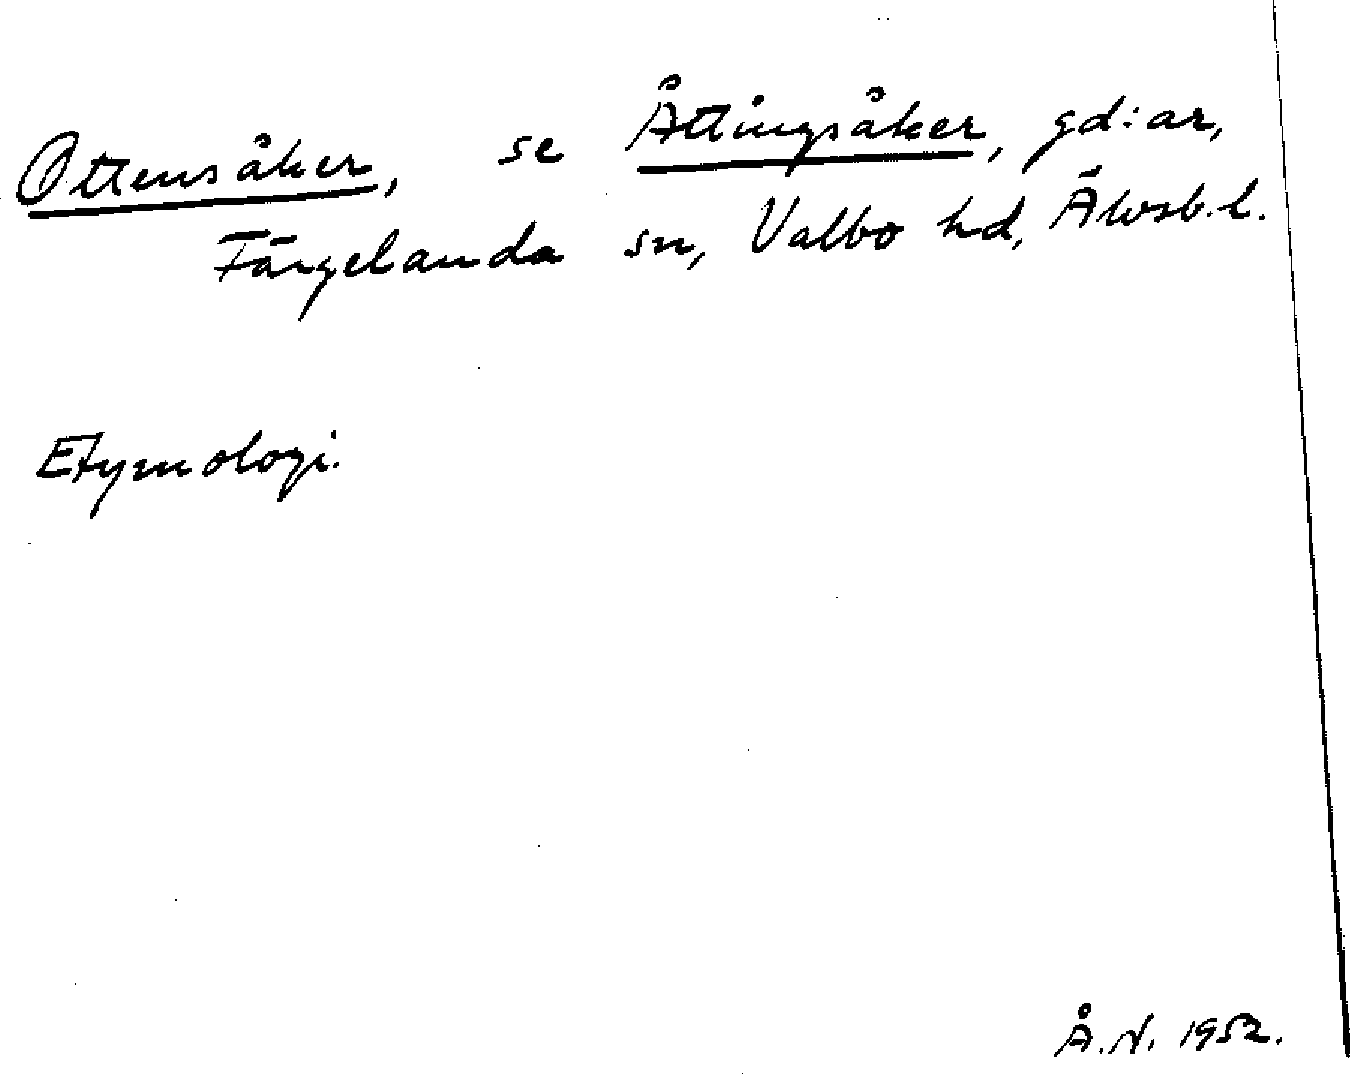 Ottensåker, se Åttingsåker, gd:ar,
Färgelanda sn, Valbo hd, Älvsb. l.
Etymologi.
Å. N. 1952.